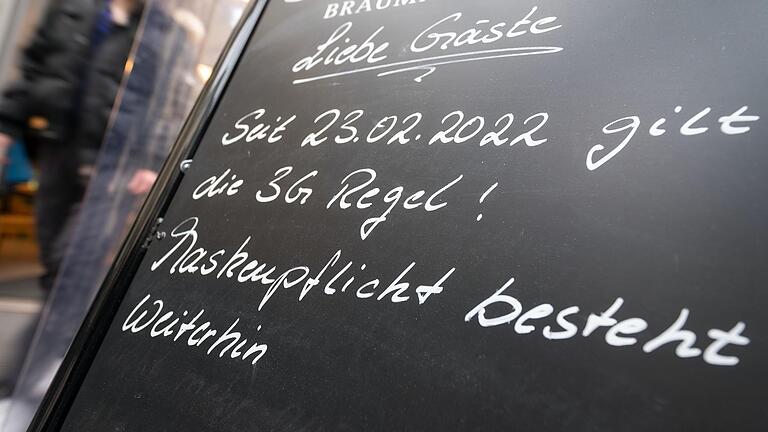 Liebe Gäste
Seit 23.02.2022 gilt
die 3G Regel!
Maskenpflicht besteht
Weiterhin